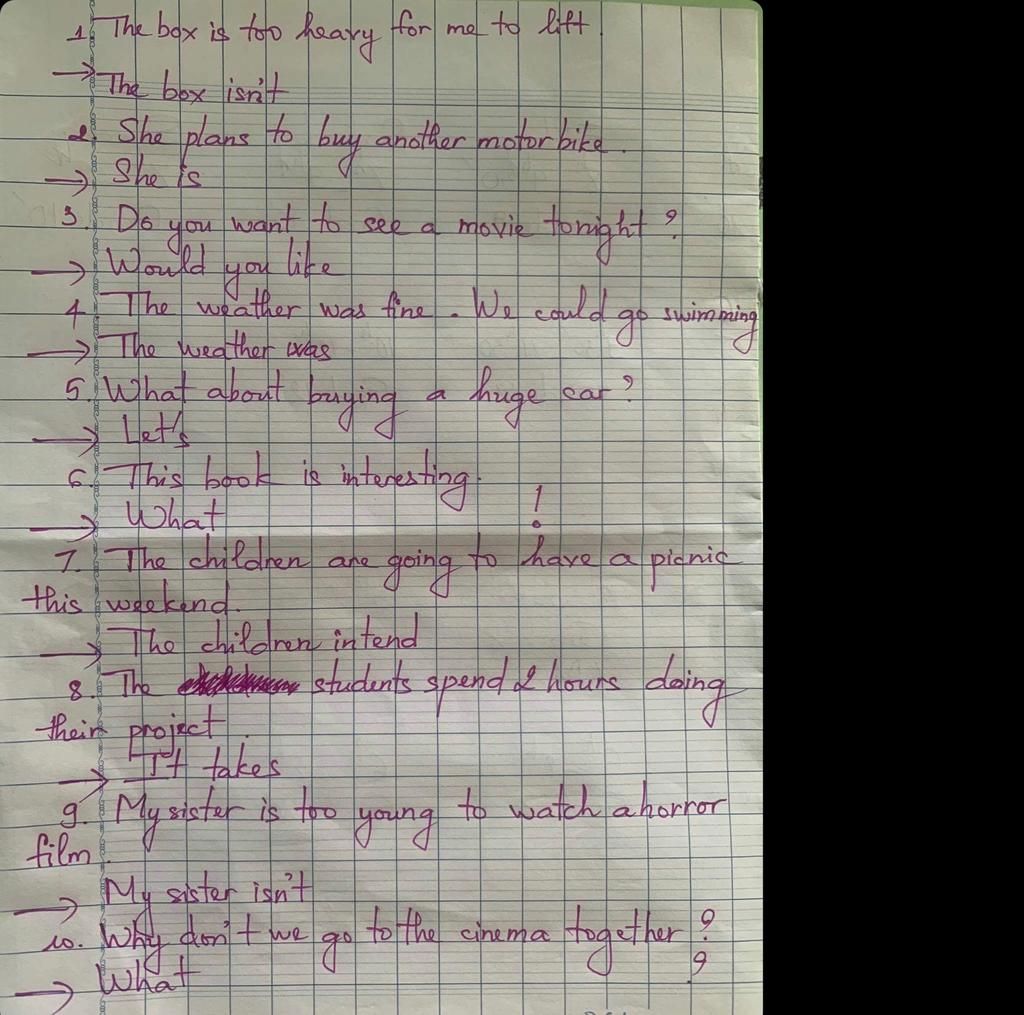 1. The box is too heavy for me to lift.
→ The box isn't
2. She plans to buy another motorbike.
→ She is
3. Do you want to see a movie tonight?
→ Would you like
4. The weather was fine. We could go swimming
→ The weather was
5. What about buying a huge car?
→ Let's
6. This book is interesting.
→ What !
7. The children are going to have a picnic
this weekend.
→ The children intend
8. The students spend 2 hours doing
their project.
→ It takes
9. My sister is too young to watch a horror
film.
→ My sister isn't
10. Why don't we go to the cinema together?
→ What ?